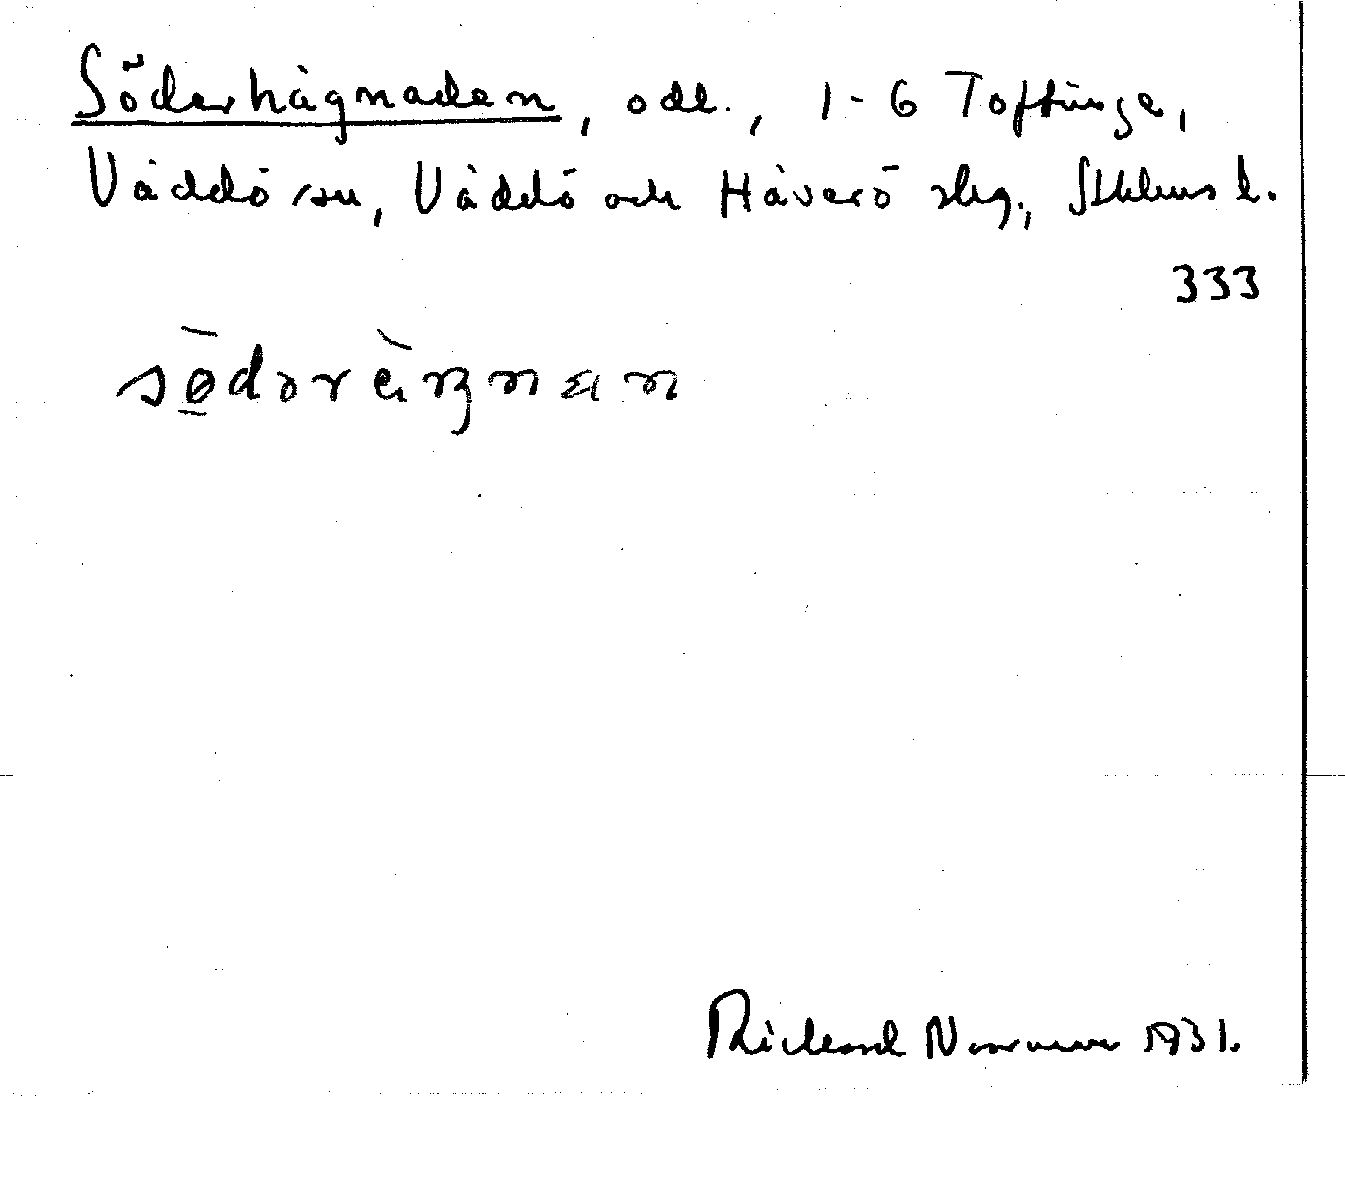 Söderhägnaden, odl., 1-6 Toftinge,
Väddö sn, Väddö och Häverö slg., Sthlms l.
333
Richard Norrman 1931.